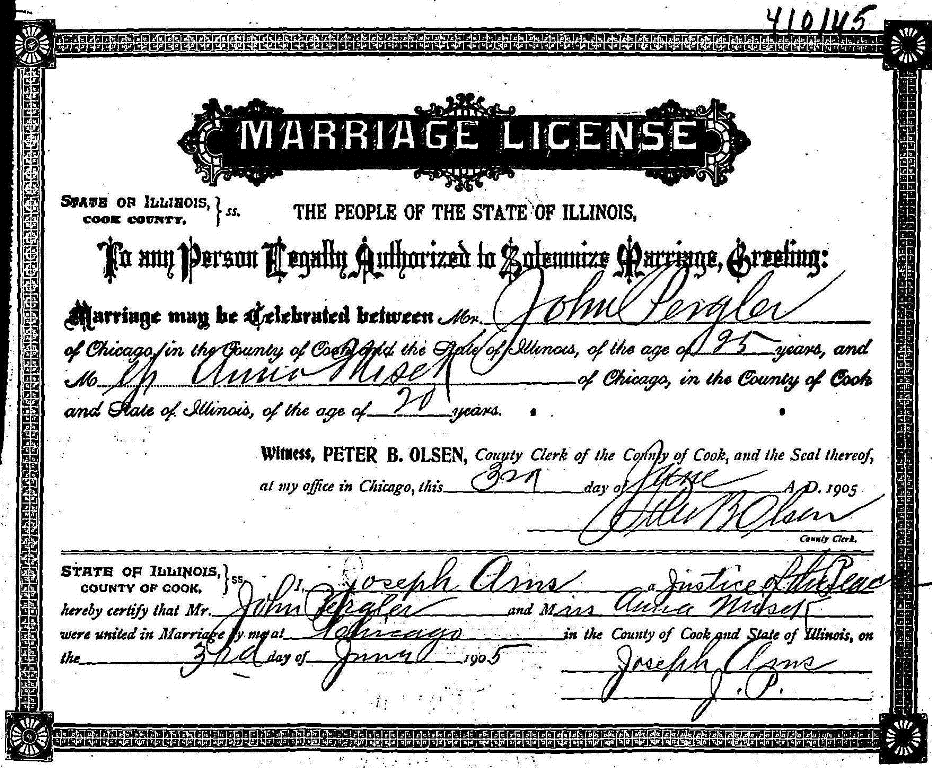 410145
MARRIAGE LICENSE
STATE OF ILLINOIS, } ss.
COOK COUNTY,
THE PEOPLE OF THE STATE OF ILLINOIS,
To any Person Legally Authorized to Solemnize Marriage, Greeting:
Marriage may be Celebrated between Mr. John Pergler
of Chicago, in the County of Cook and the State of Illinois, of the age of 25 years, and
M Annie Misek of Chicago, in the County of Cook
and State of Illinois, of the age of 20 years.
Witness, PETER B. OLSEN, County Clerk of the County of Cook, and the Seal thereof,
at my office in Chicago, this 3rd day of June A.D. 1905
Peter B Olsen
County Clerk.
STATE OF ILLINOIS, } ss
COUNTY OF COOK,
I, Joseph Arns a Justice of the Peace
hereby certify that Mr. John Pergler and Miss Anna Misek
were united in Marriage by me at Chicago in the County of Cook and State of Illinois, on
the 3rd day of June 1905
Joseph Arns
J. P.